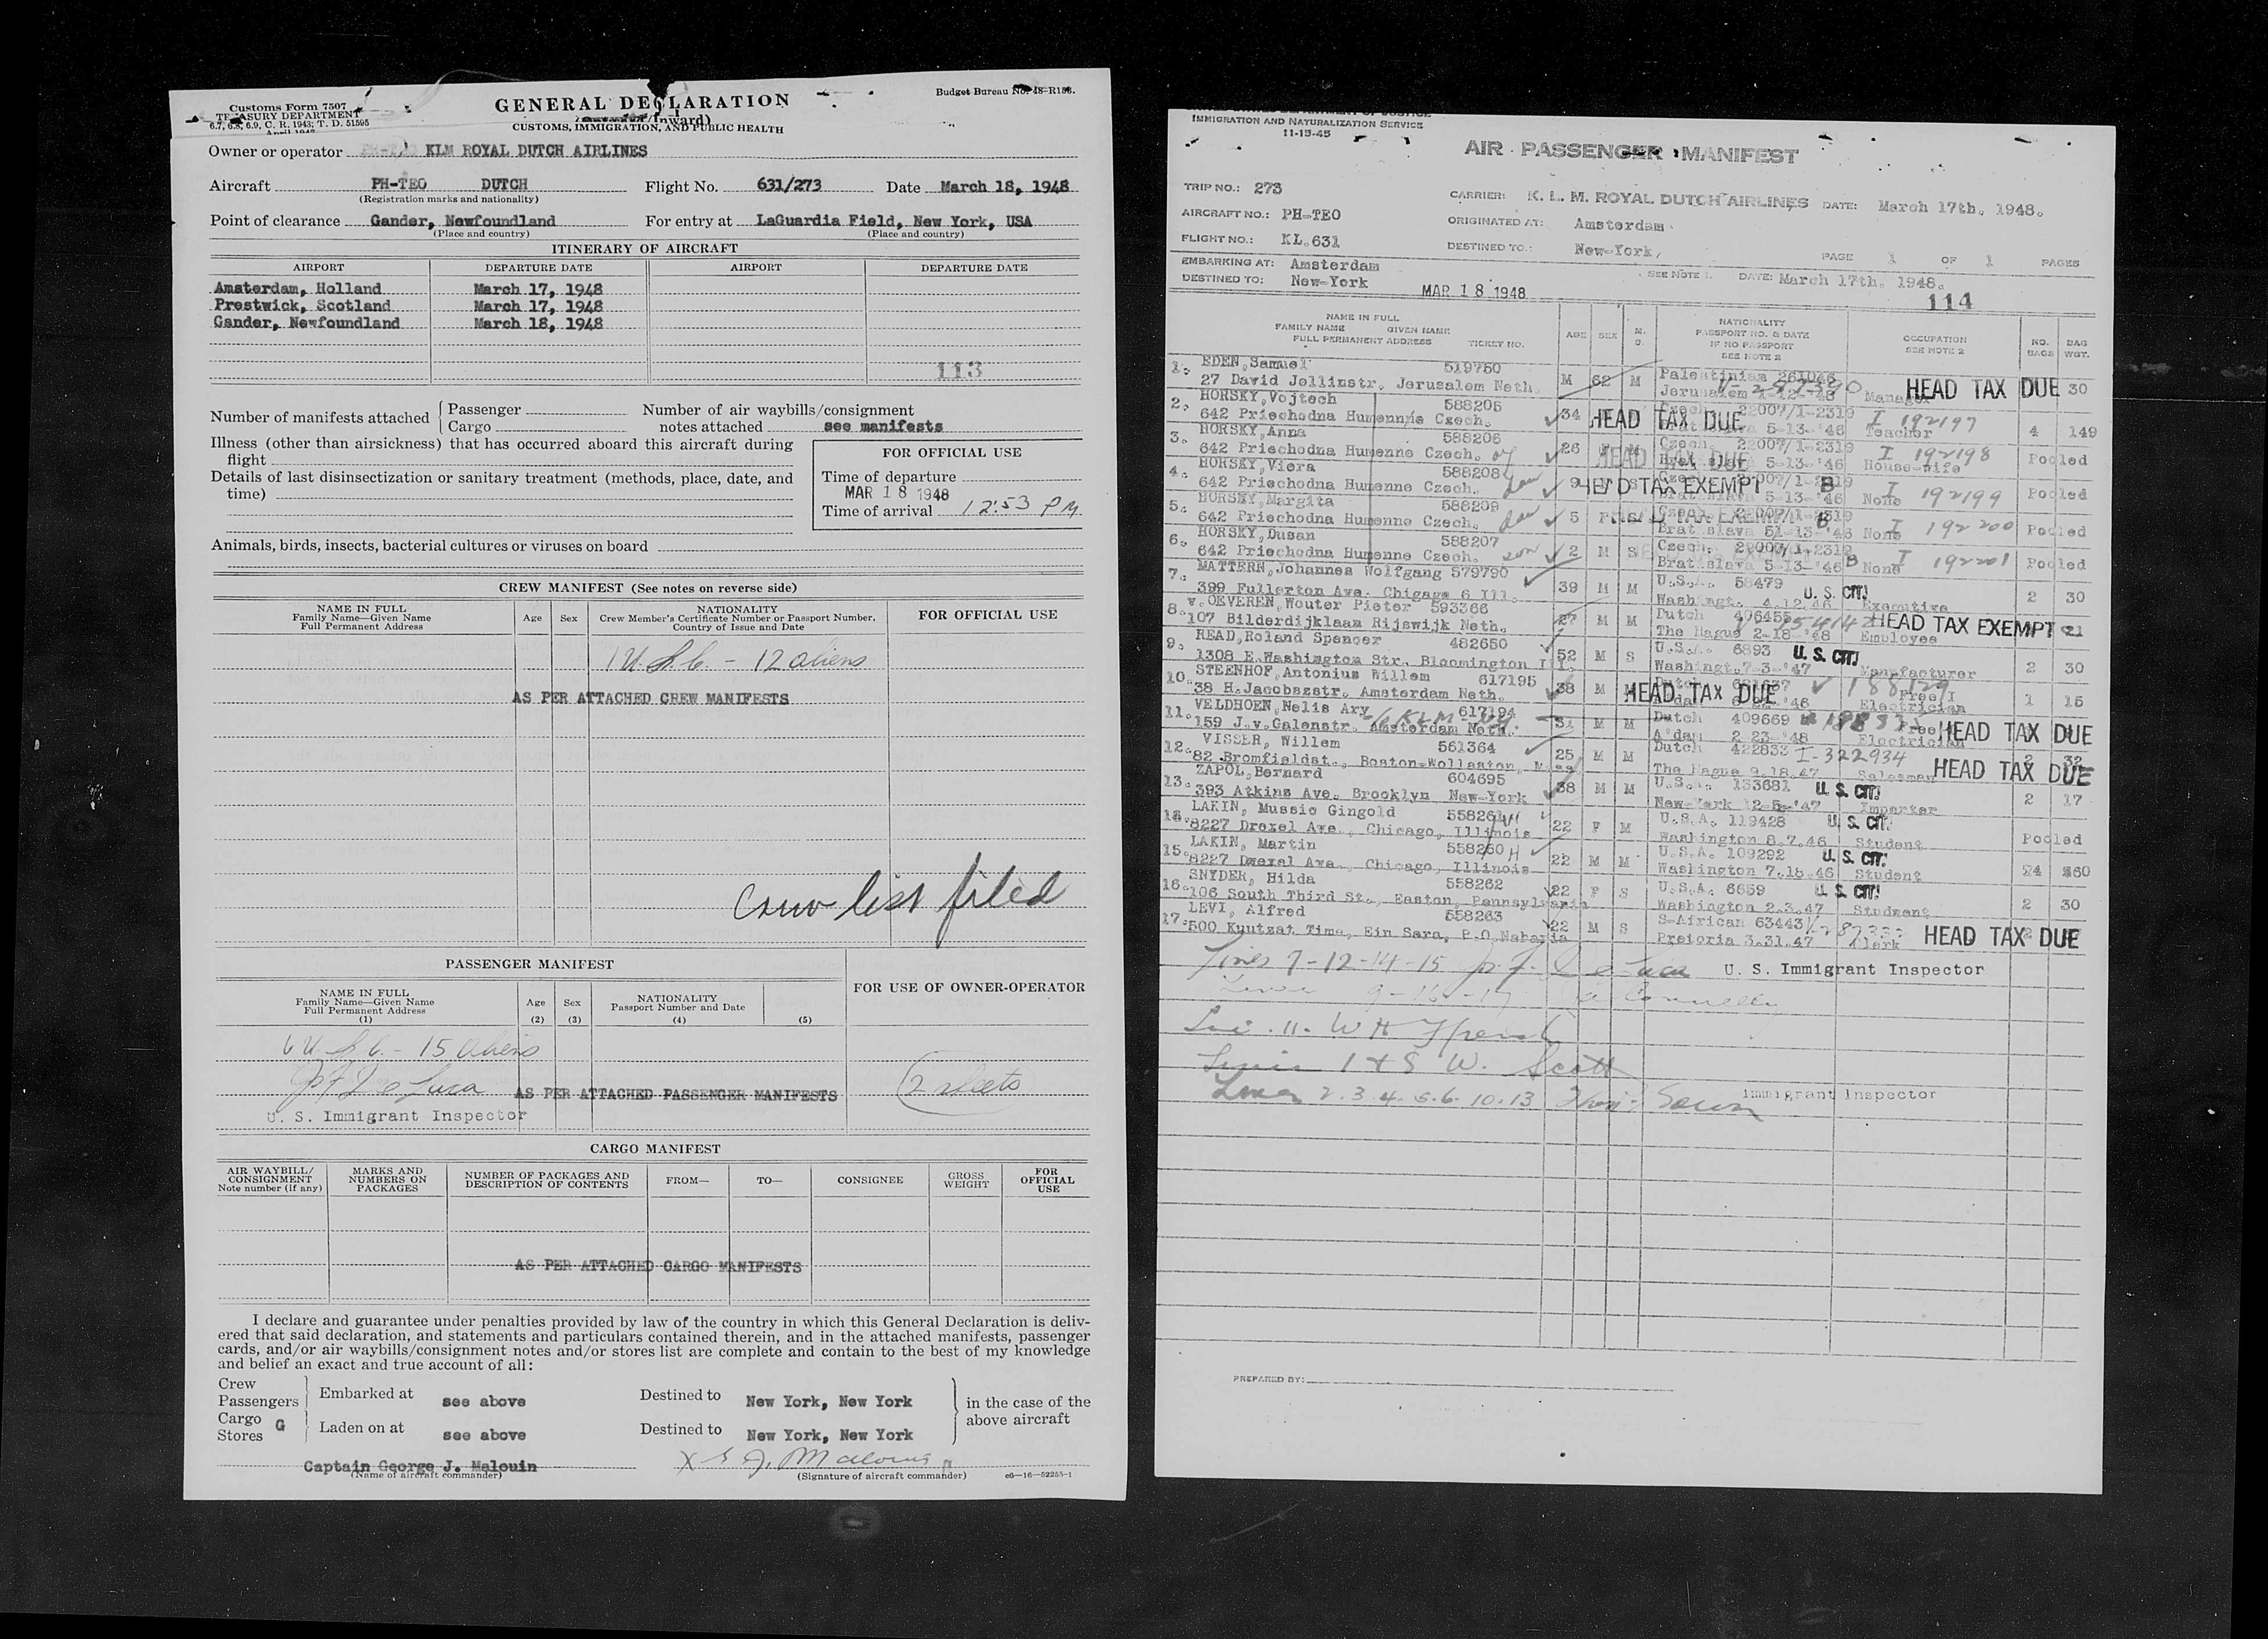 Customs Form 7507
TREASURY DEPARTMENT
6.7, 6.8, 6.9, C. R. 1943; T. D. 51595
April 1947
GENERAL DECLARATION
(Inward)
CUSTOMS, IMMIGRATION, AND PUBLIC HEALTH
Budget Bureau No. 48-R158.
Owner or operator KLM ROYAL DUTCH AIRLINES
Aircraft PH-TEO DUTCH Flight No. 631/273 Date March 18, 1948
(Registration marks and nationality)
Point of clearance Gander, Newfoundland For entry at LaGuardia Field, New York, USA
(Place and country) (Place and country)
ITINERARY OF AIRCRAFT
AIRPORT DEPARTURE DATE AIRPORT DEPARTURE DATE
Amsterdam, Holland March 17, 1948
Prestwick, Scotland March 17, 1948
Gander, Newfoundland March 18, 1948
113
Number of manifests attached Passenger Number of air waybills/consignment
Cargo notes attached see manifests
Illness (other than airsickness) that has occurred aboard this aircraft during
flight
Details of last disinsectization or sanitary treatment (methods, place, date, and
time)
FOR OFFICIAL USE
Time of departure
MAR 18 1948
Time of arrival 12:53 PM
Animals, birds, insects, bacterial cultures or viruses on board
CREW MANIFEST (See notes on reverse side)
NAME IN FULL
Family Name—Given Name
Full Permanent Address
Age Sex
NATIONALITY
Crew Member's Certificate Number or Passport Number,
Country of Issue and Date
FOR OFFICIAL USE
1 U.S.C. - 12 aliens
AS PER ATTACHED CREW MANIFESTS
Crew list filed
PASSENGER MANIFEST
NAME IN FULL
Family Name—Given Name
Full Permanent Address
(1)
Age
(2)
Sex
(3)
NATIONALITY
Passport Number and Date
(4)
(5)
FOR USE OF OWNER-OPERATOR
6 U.S.C. - 15 Aliens
J F De Luca
AS PER ATTACHED PASSENGER MANIFESTS
2 sheets
U. S. Immigrant Inspector
CARGO MANIFEST
AIR WAYBILL/
CONSIGNMENT
Note number (if any)
MARKS AND
NUMBERS ON
PACKAGES
NUMBER OF PACKAGES AND
DESCRIPTION OF CONTENTS
FROM— TO— CONSIGNEE
GROSS
WEIGHT
FOR
OFFICIAL
USE
AS PER ATTACHED CARGO MANIFESTS
I declare and guarantee under penalties provided by law of the country in which this General Declaration is deliv-
ered that said declaration, and statements and particulars contained therein, and in the attached manifests, passenger
cards, and/or air waybills/consignment notes and/or stores list are complete and contain to the best of my knowledge
and belief an exact and true account of all:
Crew
Passengers Embarked at see above Destined to New York, New York in the case of the
Cargo G above aircraft
Stores Laden on at see above Destined to New York, New York
Captain George J. Malouin
(Name of aircraft commander)
X G J. Malouin
(Signature of aircraft commander) c6—16—52255-1
IMMIGRATION AND NATURALIZATION SERVICE
11-15-45
AIR PASSENGER MANIFEST
TRIP NO.: 273 CARRIER: K. L. M. ROYAL DUTCH AIRLINES DATE: March 17th. 1948.
AIRCRAFT NO.: PH-TEO ORIGINATED AT: Amsterdam
FLIGHT NO.: KL.631 DESTINED TO.: New-York, PAGE 1 OF 1 PAGES
EMBARKING AT: Amsterdam
DESTINED TO: New-York MAR 18 1948 SEE NOTE 1. DATE: March 17th. 1948.
114
NAME IN FULL
FAMILY NAME GIVEN NAME
FULL PERMANENT ADDRESS TICKET NO.
AGE SEX M. S.
NATIONALITY
PASSPORT NO. & DATE
IF NO PASSPORT
SEE NOTE 2
OCCUPATION
SEE NOTE 2
NO. BAGS
BAG WGT.
1. EDEN, Samuel 519750 M 62 M Palestinian 261046 HEAD TAX DUE 30
27 David Jellinstr. Jerusalem Neth. Jerusalem 1-12-'48 Manager
2. HORSKY, Vojtech 588205 34 HEAD TAX DUE Czech. 22007/1-2319 I 192197
642 Priechodna Humennie Czech. 5-13-'46 Teacher 4 149
3. HORSKY, Anna 588206 26 F M Czech. 22007/1-2319 I 192198
642 Priechodna Humenne Czech. HEAD TAX DUE 5-13-'46 House-wife Pooled
4. HORSKY, Viera 588208 9 HEAD TAX EXEMPT B I 192199
642 Priechodna Humenne Czech. dau 5-13-'46 None Pooled
5. HORSKY, Margita 588209 5 F HEAD TAX EXEMPT B I 192200
642 Priechodna Humenne Czech. dau Bratislava 51-13-'46 None Pooled
6. HORSKY, Dusan 588207 2 M S Czech. 22007/1-2319 I 192201
642 Priechodna Humenne Czech. son Bratislava 5-13-'46 B None Pooled
7. MATTERN, Johannes Wolfgang 579790 39 M M U.S.A. 58479 U. S. CIT.
399 Fullerton Ave. Chigago 6 Ill. Washingt. 4.12.46 Executive 2 30
8. v. OEVEREN, Wouter Pieter 593366 27 M M Dutch 406455 HEAD TAX EXEMPT 21
107 Bilderdijklaan Rijswijk Neth. The Hague 2-18-'48 Employee
9. READ, Roland Spencer 482650 52 M S U.S.A. 6893 U. S. CIT.
1308 E. Washington Str. Bloomington Ill. Washingt. 7-3-'47 Manufacturer 2 30
10. STEENHOF, Antonius Willem 617195 38 M M HEAD TAX DUE 188129
38 H. Jacobszstr. Amsterdam Neth. '46 Electrician 1 15
11. VELDHOEN, Nelis Ary 617194 31 M M Dutch 409669 HEAD TAX DUE
159 J.v.Galenstr. Amsterdam Neth. A'dam 2 23-'48 Electrician
12. VISSER, Willem 561364 25 M M Dutch 422833 I-322934 2 32
82 Bromfieldst., Boston-Wollaston, Mass The Hague 9.18.47 Salesman HEAD TAX DUE
13. ZAPOL, Bernard 604695 38 M M U.S.A. 133681 U. S. CIT.
393 Atkins Ave. Brooklyn New-York New-York 12-5-'47 Importer 2 17
14. LAKIN, Mussie Gingold 558261 22 F M U.S.A. 119428 U. S. CIT.
8227 Drexel Ave., Chicago, Illinois Washington 8.7.46 Student Pooled
15. LAKIN, Martin 558260 H 22 M M U.S.A. 109292 U. S. CIT.
8227 Drexel Ave., Chicago, Illinois Washington 7.15.46 Student 60
16. SNYDER, Hilda 558262 22 F S U.S.A. 6659 U. S. CIT.
106 South Third St., Easton, Pennsylvania Washington 2.3.47 Student 2 30
17. LEVI, Alfred 558263 22 M S S-African 63443
500 Kuutzat Tima, Ein Sara, P.O. Naharia Pretoria 3.31.47 Clerk HEAD TAX DUE
Lines 7-12-14-15 J. F. De Luca U. S. Immigrant Inspector
Lines 9-16-17 Connelly
Line 11. W H
Lines 1 & 8 W. Scott
Lines 2.3.4.5.6.10.13 Immigrant Inspector
PREPARED BY: